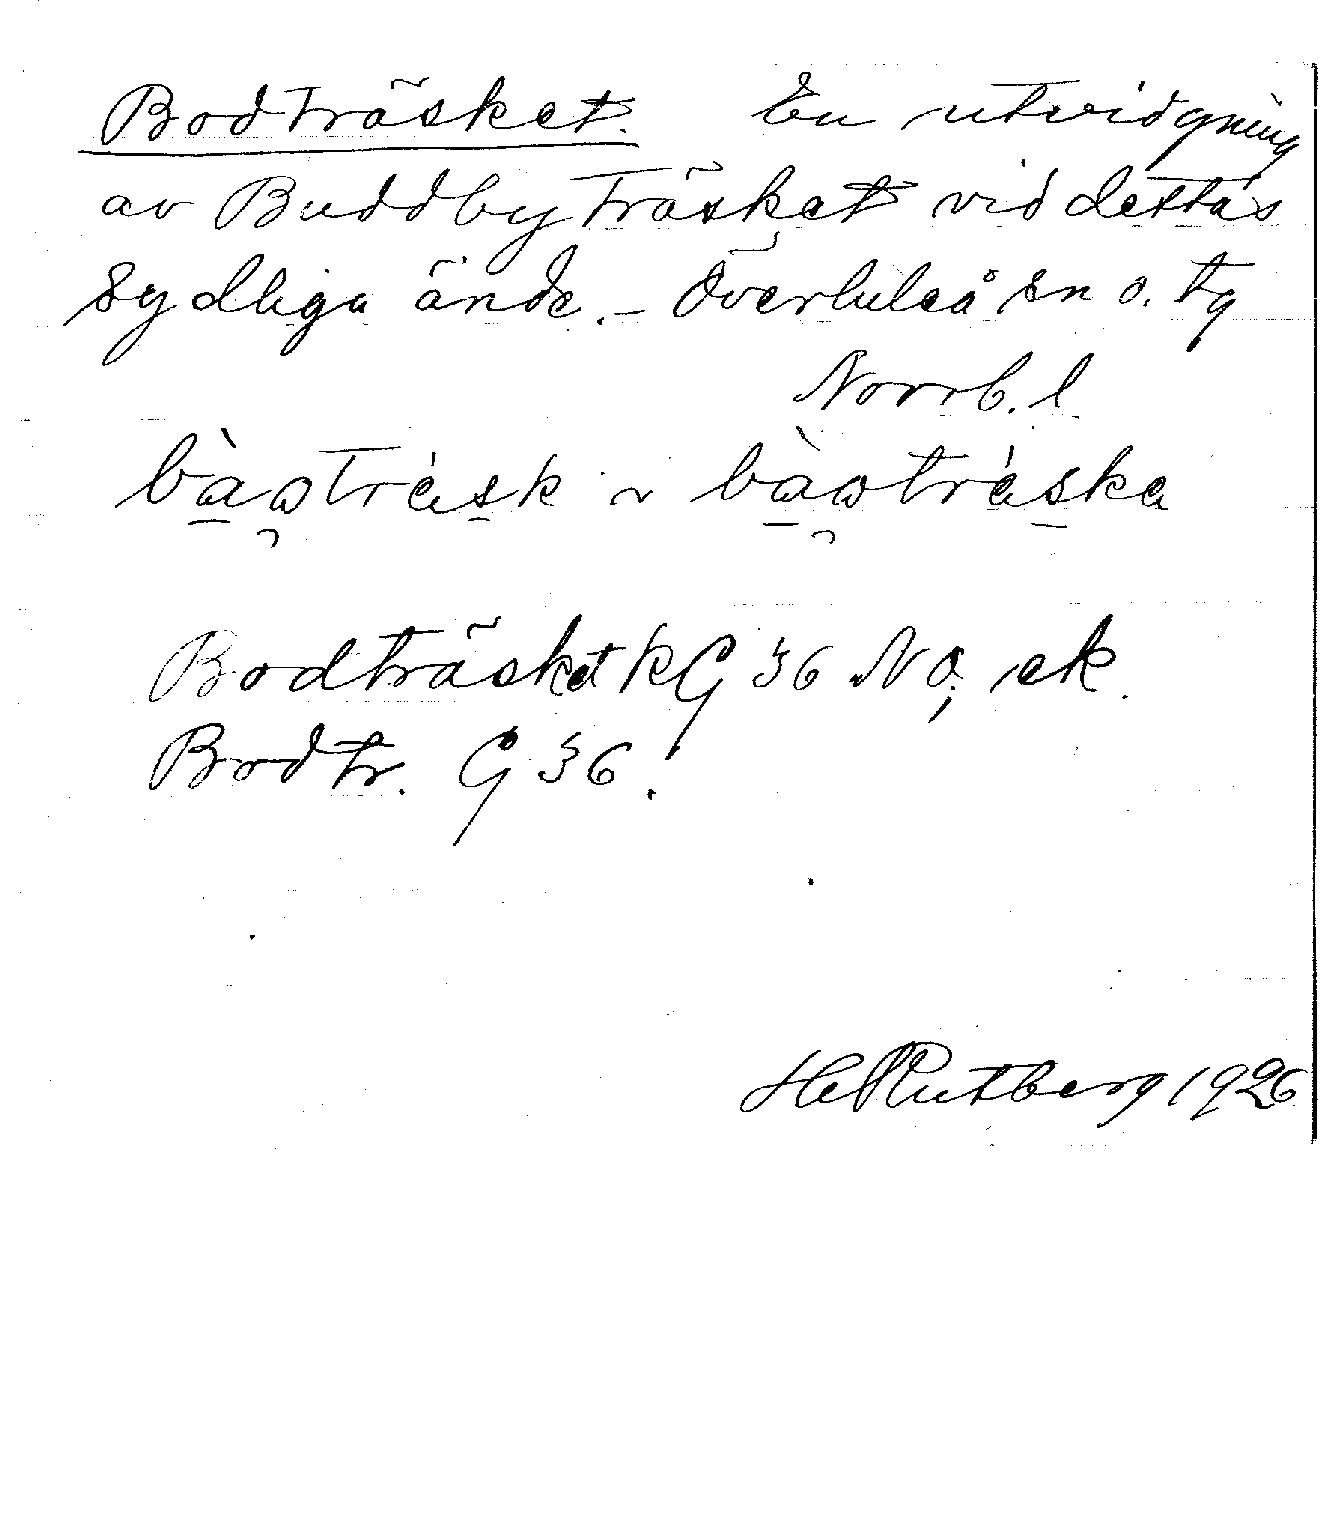 Bodträsket. En utvidgning
av Buddbyträsket vid dettas
sydliga ände. – Överluleå sn o. tg
Norrb. l.
Bodträsket kG 36 NO, ek.
Bodtr. G 36.
H Rutberg 1926